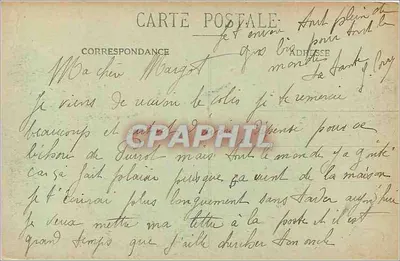 CARTE POSTALE
Je t'envoie tout plein de
gros bis pour tout le
monde
ta tante
CORRESPONDANCE
ADRESSE
Ma chère Margot
Je viens de recevoir le colis je te remercie
beaucoup et
pour ce
mais tout le monde y a goûté
car ça fait plaisir puisque ça vient de la maison
je t'écrirai plus longuement sans tarder aujd'hui
je veux mettre ma lettre à la poste et il est
grand temps que j'aille chercher ton oncle
PICCARPO